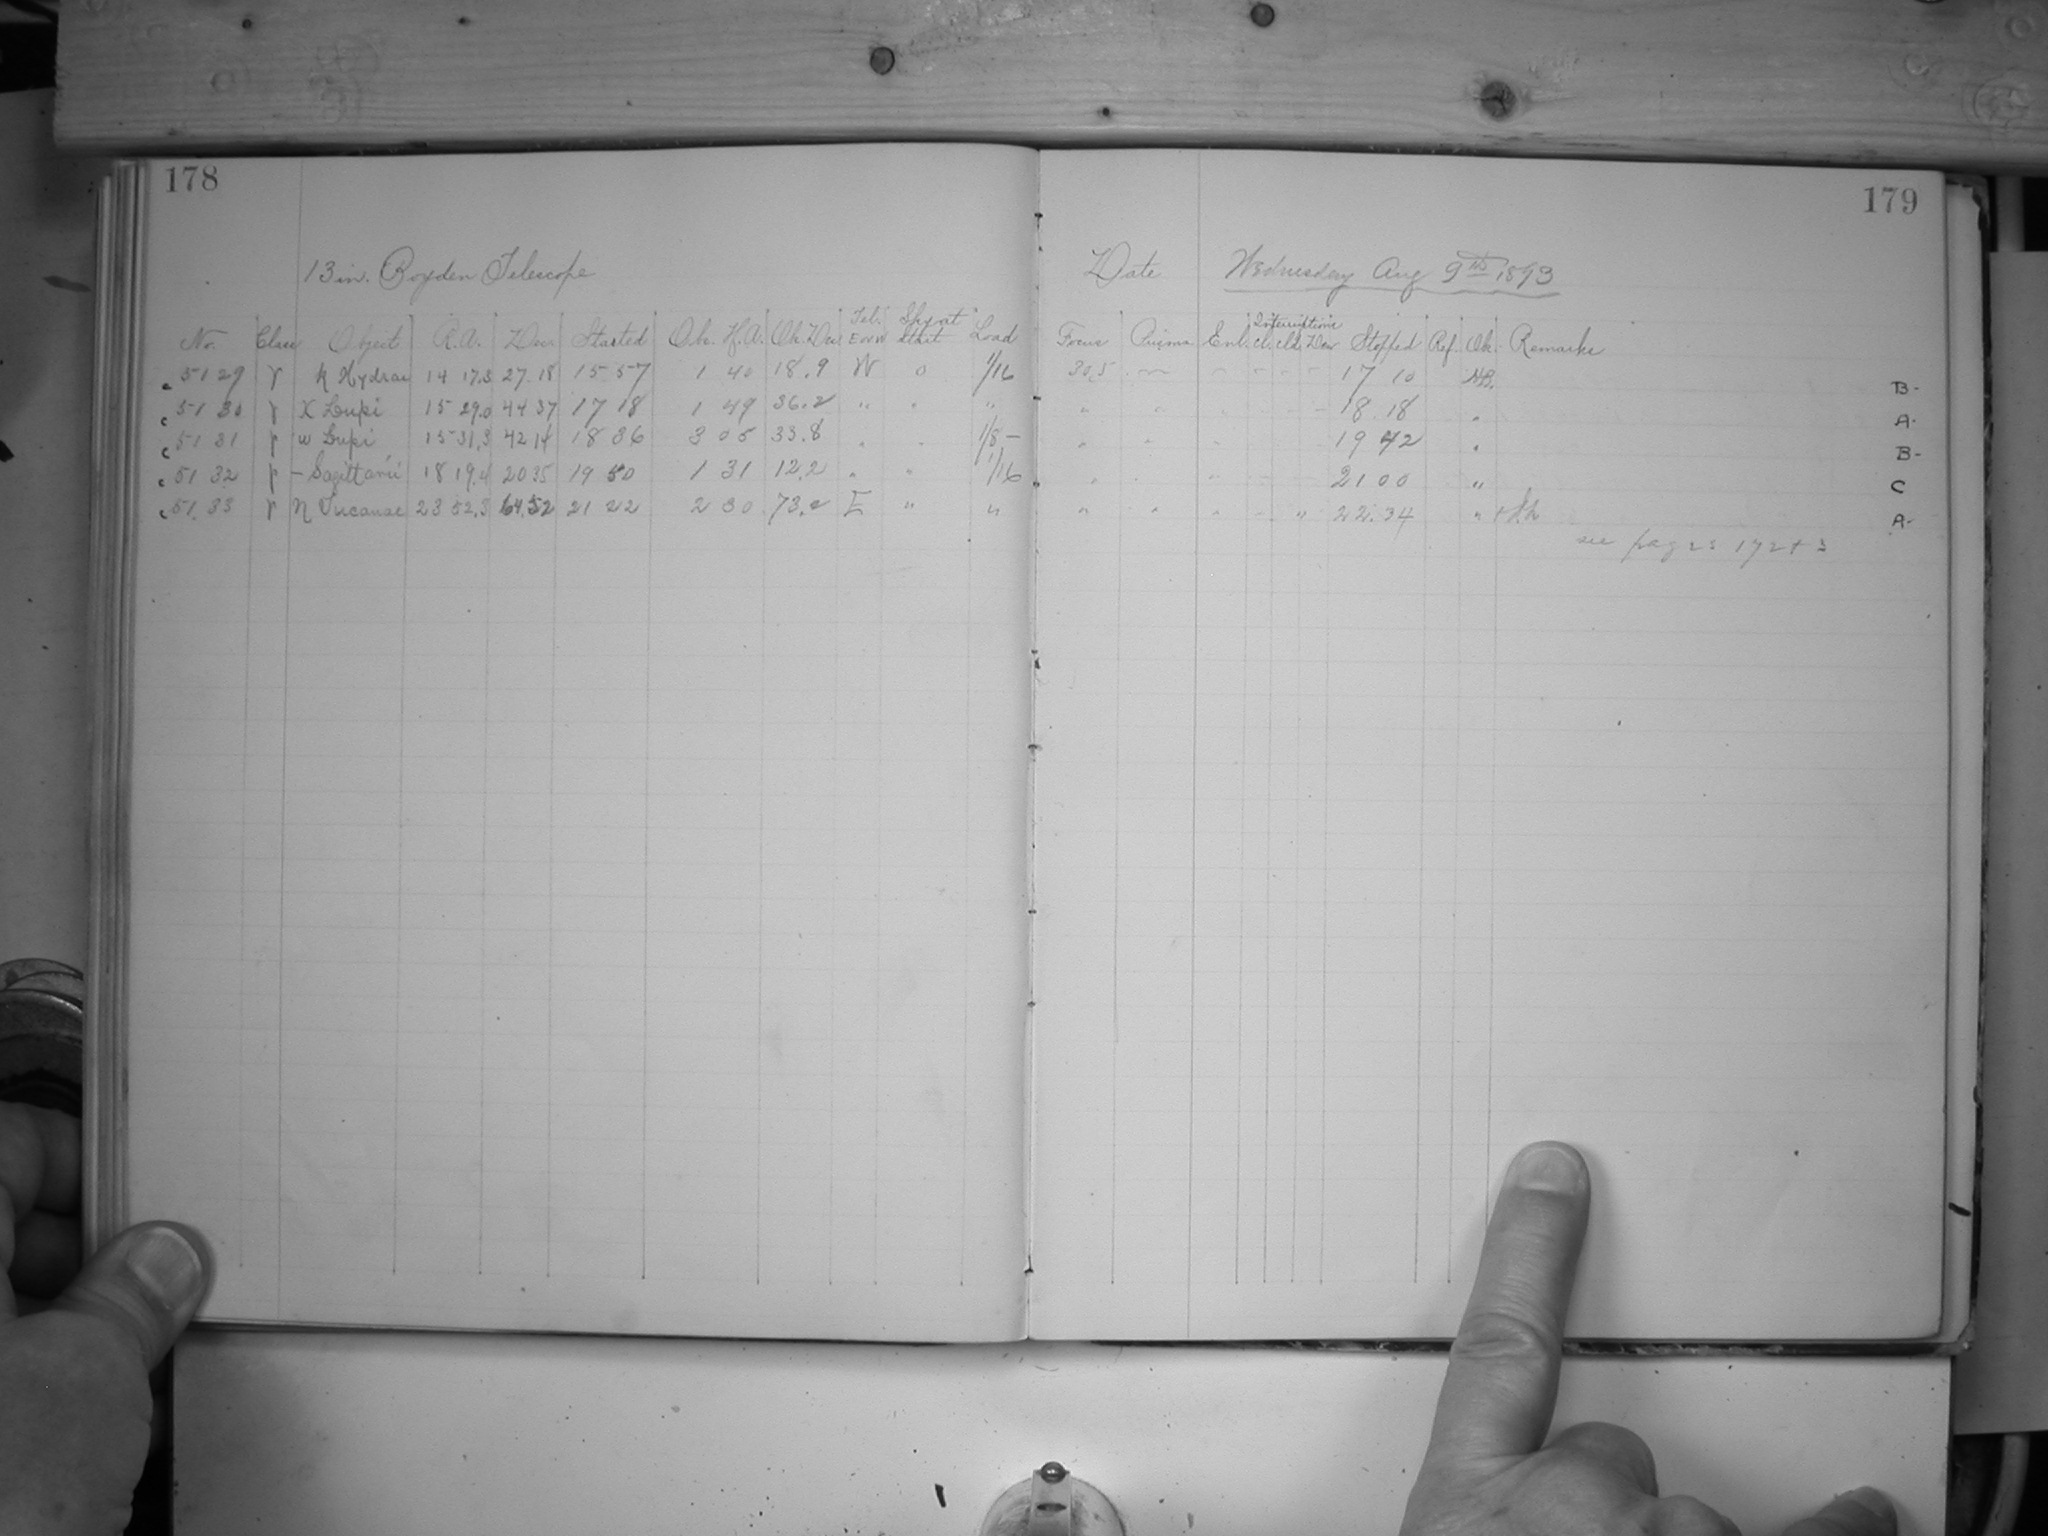 178
13 in. Boyden Telescope
No. Class Object R.A. Dec. Started Ob. H.A. Ob. Dec. Tel. E or W Load
5129 γ k Hydrae 14 17.3 27.18 15 57 1 40 18.9 W 0 1/16
5130 γ K Lupi 15 29.0 44 37 17 18 1 49 36.2 " " "
5131 γ w Lupi 15 31.3 42 14 18 36 3 05 33.8 " " 1/8 -
5132 γ - Sagittarii 18 19.4 20 35 19 50 1 31 12.2 " " 1/16
5133 γ η Tucanae 23 52.3 64.52 21 22 2 30 73.2 E " "
179
Date Wednesday Aug 9th 1893
Focus Prisms Enl. Interruptions cl. cld. Dew Stopped Ref. Ob. Remarks
30.5 17 10 B-
" 18.18 " A-
" 19 42 " B-
" 21 00 " C
" " 22.34 " A-
see pages 172 + 3